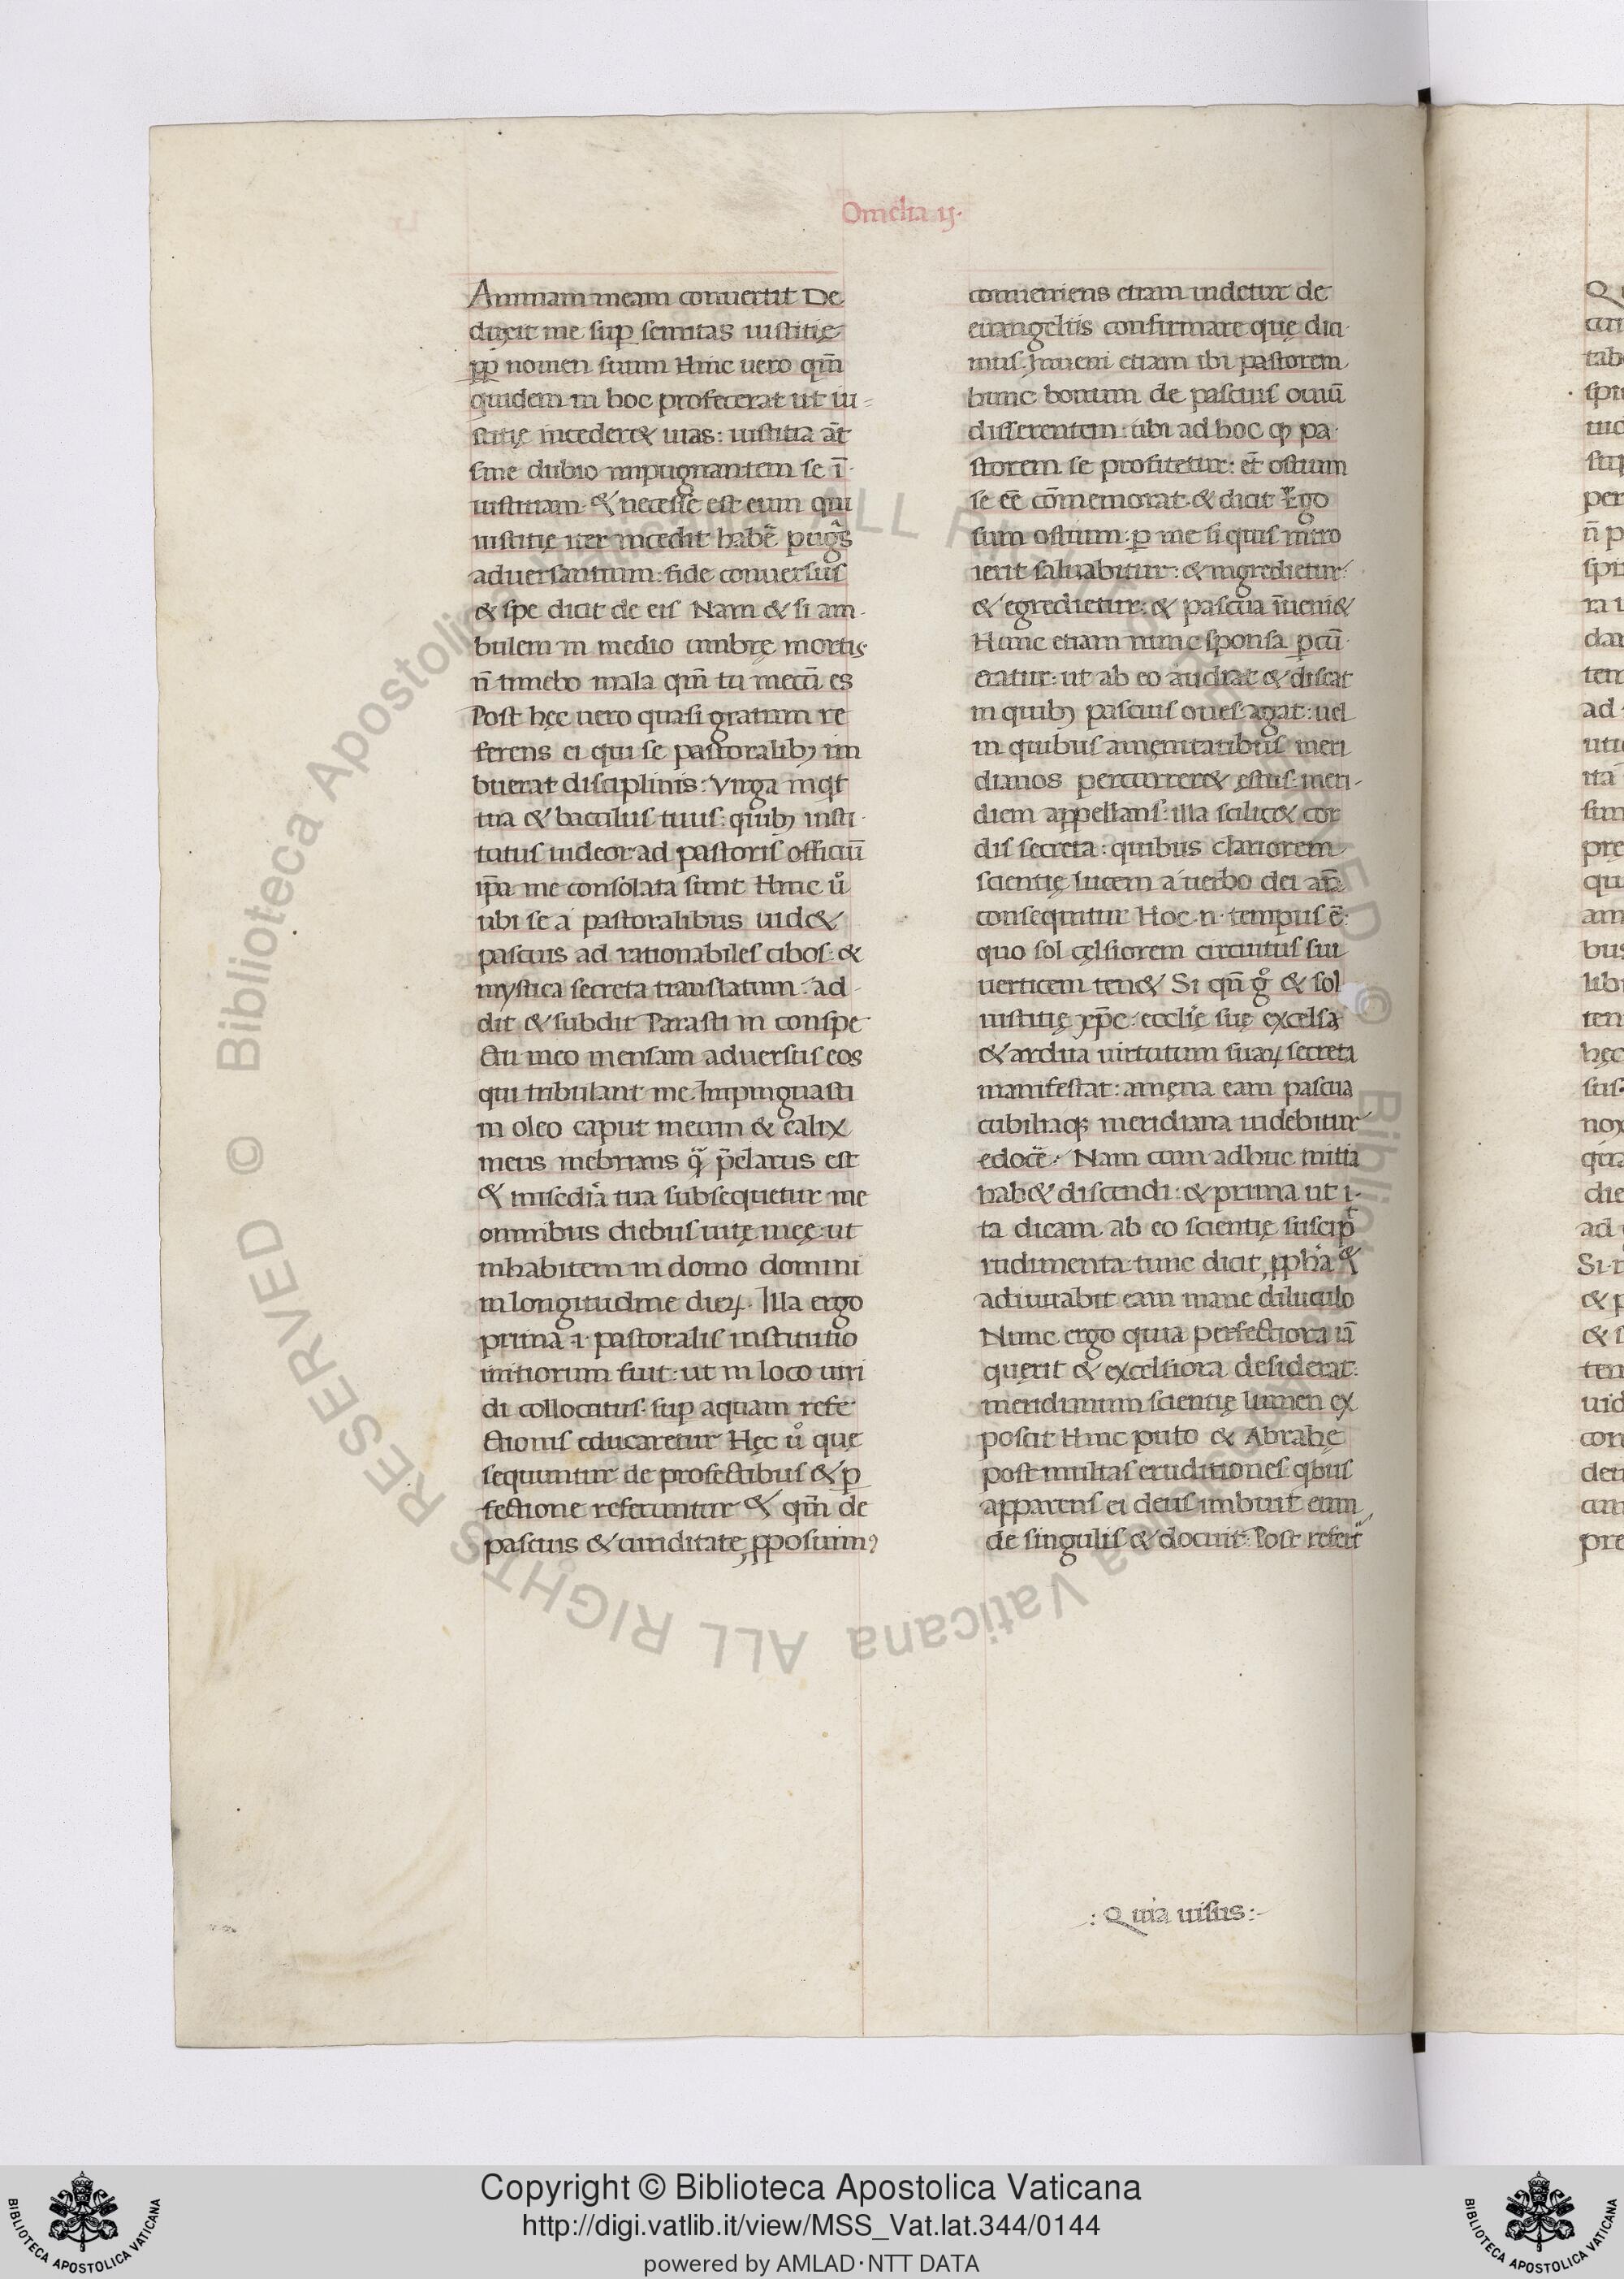 Omelia ij.
Animam meam conuertit De
duxit me sup semitas iustitię
pp nomen suum Hinc uero qm̄
quidem in hoc profecerat ut iu
stitię incederet uias: iustitia at̄
sine dubio impugnantem se ī
iustitiam & necesse est eum qui
iustitię iter incedit habē pugās
aduersantium: fide conuersus
& spe dicit de eis Nam & si am
bulem in medio umbrę mortis
n̄ timebo mala qm̄ tu mecū es
Post hęc uero quasi gratiam re
ferens ei qui se pastoralibꝫ im
buerat disciplinis: Virga inqt
tua & baculus tuus: quibꝫ insti
tutus uideor ad pastoris officiū
ip̄a me consolata sunt Hinc uo
ubi se a pastoralibus uid&
pascuis ad rationabiles cibos: &
mystica secreta translatum: ad
dit & subdit Parasti in conspe
ctu meo mensam aduersus eos
qui tribulant me. Impinguasti
in oleo caput meum & calix
meus inebrians q p̄clarus est
& mīsedia tua subsequetur me
omnibus diebus uitę meę: ut
inhabitem in domo domini
in longitudine dieꝝ. Illa ergo
prima .i. pastoralis institutio
initiorum fuit: ut in loco uiri
di collocatus: sup aquam refe
ctionis educaretur Hęc uo quę
sequuntur de profectibus & ꝑ
fectione referuntur & qm̄ de
pascuis & uiriditate ꝓposuim⁹
conueniens etiam uidetur de
euangeliis confirmare quę dici
mus. Inueni etiam ibi pastorem
hunc bonum de pascuis ouiū
disserentem: ubi ad hoc qꝫ pa
storem se profitetur: et̄ ostium
se eē cōmemorat & dicit Ego
sum ostium: ꝑ me si quis intro
ierit saluabitur: & ingredietur:
& egredietur: & pascua īueni&
Hunc etiam nunc sponsa ꝑcū
ctatur: ut ab eo audiat & discat
in quibꝫ pascuis oues agat: uel
in quibus amęnitatibus meri
dianos percurrer& ęstus: meri
diem appellans: illa scilic& cor
dis secreta: quibus clariorem
scientię lucem a uerbo dei an̄a
consequitur Hoc .n. tempus ē:
quo sol cęlsiorem circuitus sui
uerticem ten& Si qn̄ go & sol
iustitię xp̄c: ecclię suę excelsa
& ardua uirtutum suaꝝ secreta
manifestat: amęna eam pascua
cubiliaqꝫ meridiana uidebitur
edocē. Nam cum adhuc initia
hab& discendi: & prima ut i
ta dicam ab eo scientię suscip̄
rudimenta tunc dicit ꝓpha &
adiuuabit eam mane diluculo
Nunc ergo quia perfectiora iā
querit & excelsiora desiderat:
meridianum scientię lumen ex
poscit Hinc puto & Abrahę
post multas eruditiones qbus
apparens ei deus imbuit eum
de singulis & docuit: Post refert
: Quia uisus :
Copyright © Biblioteca Apostolica Vaticana
http://digi.vatlib.it/view/MSS_Vat.lat.344/0144
powered by AMLAD·NTT DATA